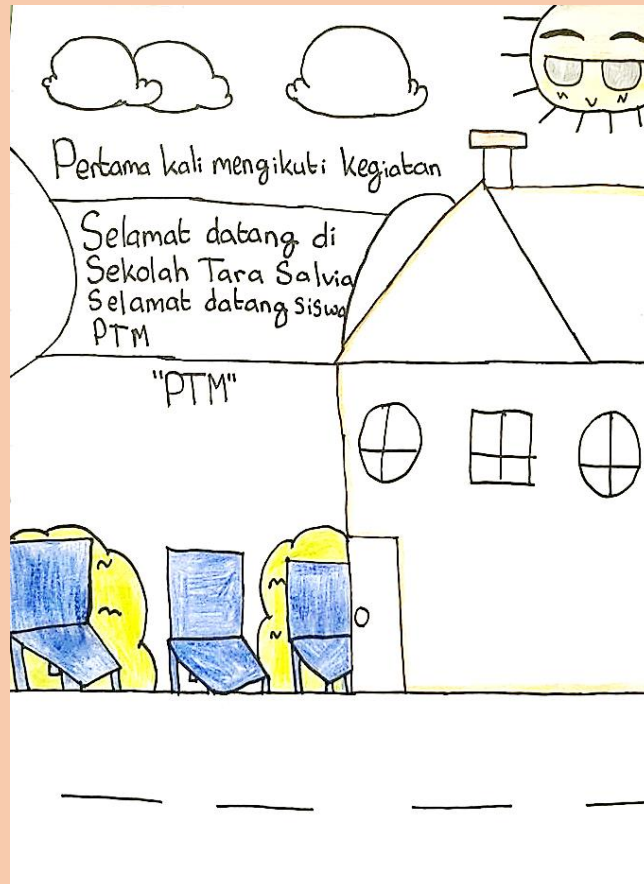 Pertama kali mengikuti kegiatan
Selamat datang di
Sekolah Tara Salvia
Selamat datang siswa
PTM
"PTM"